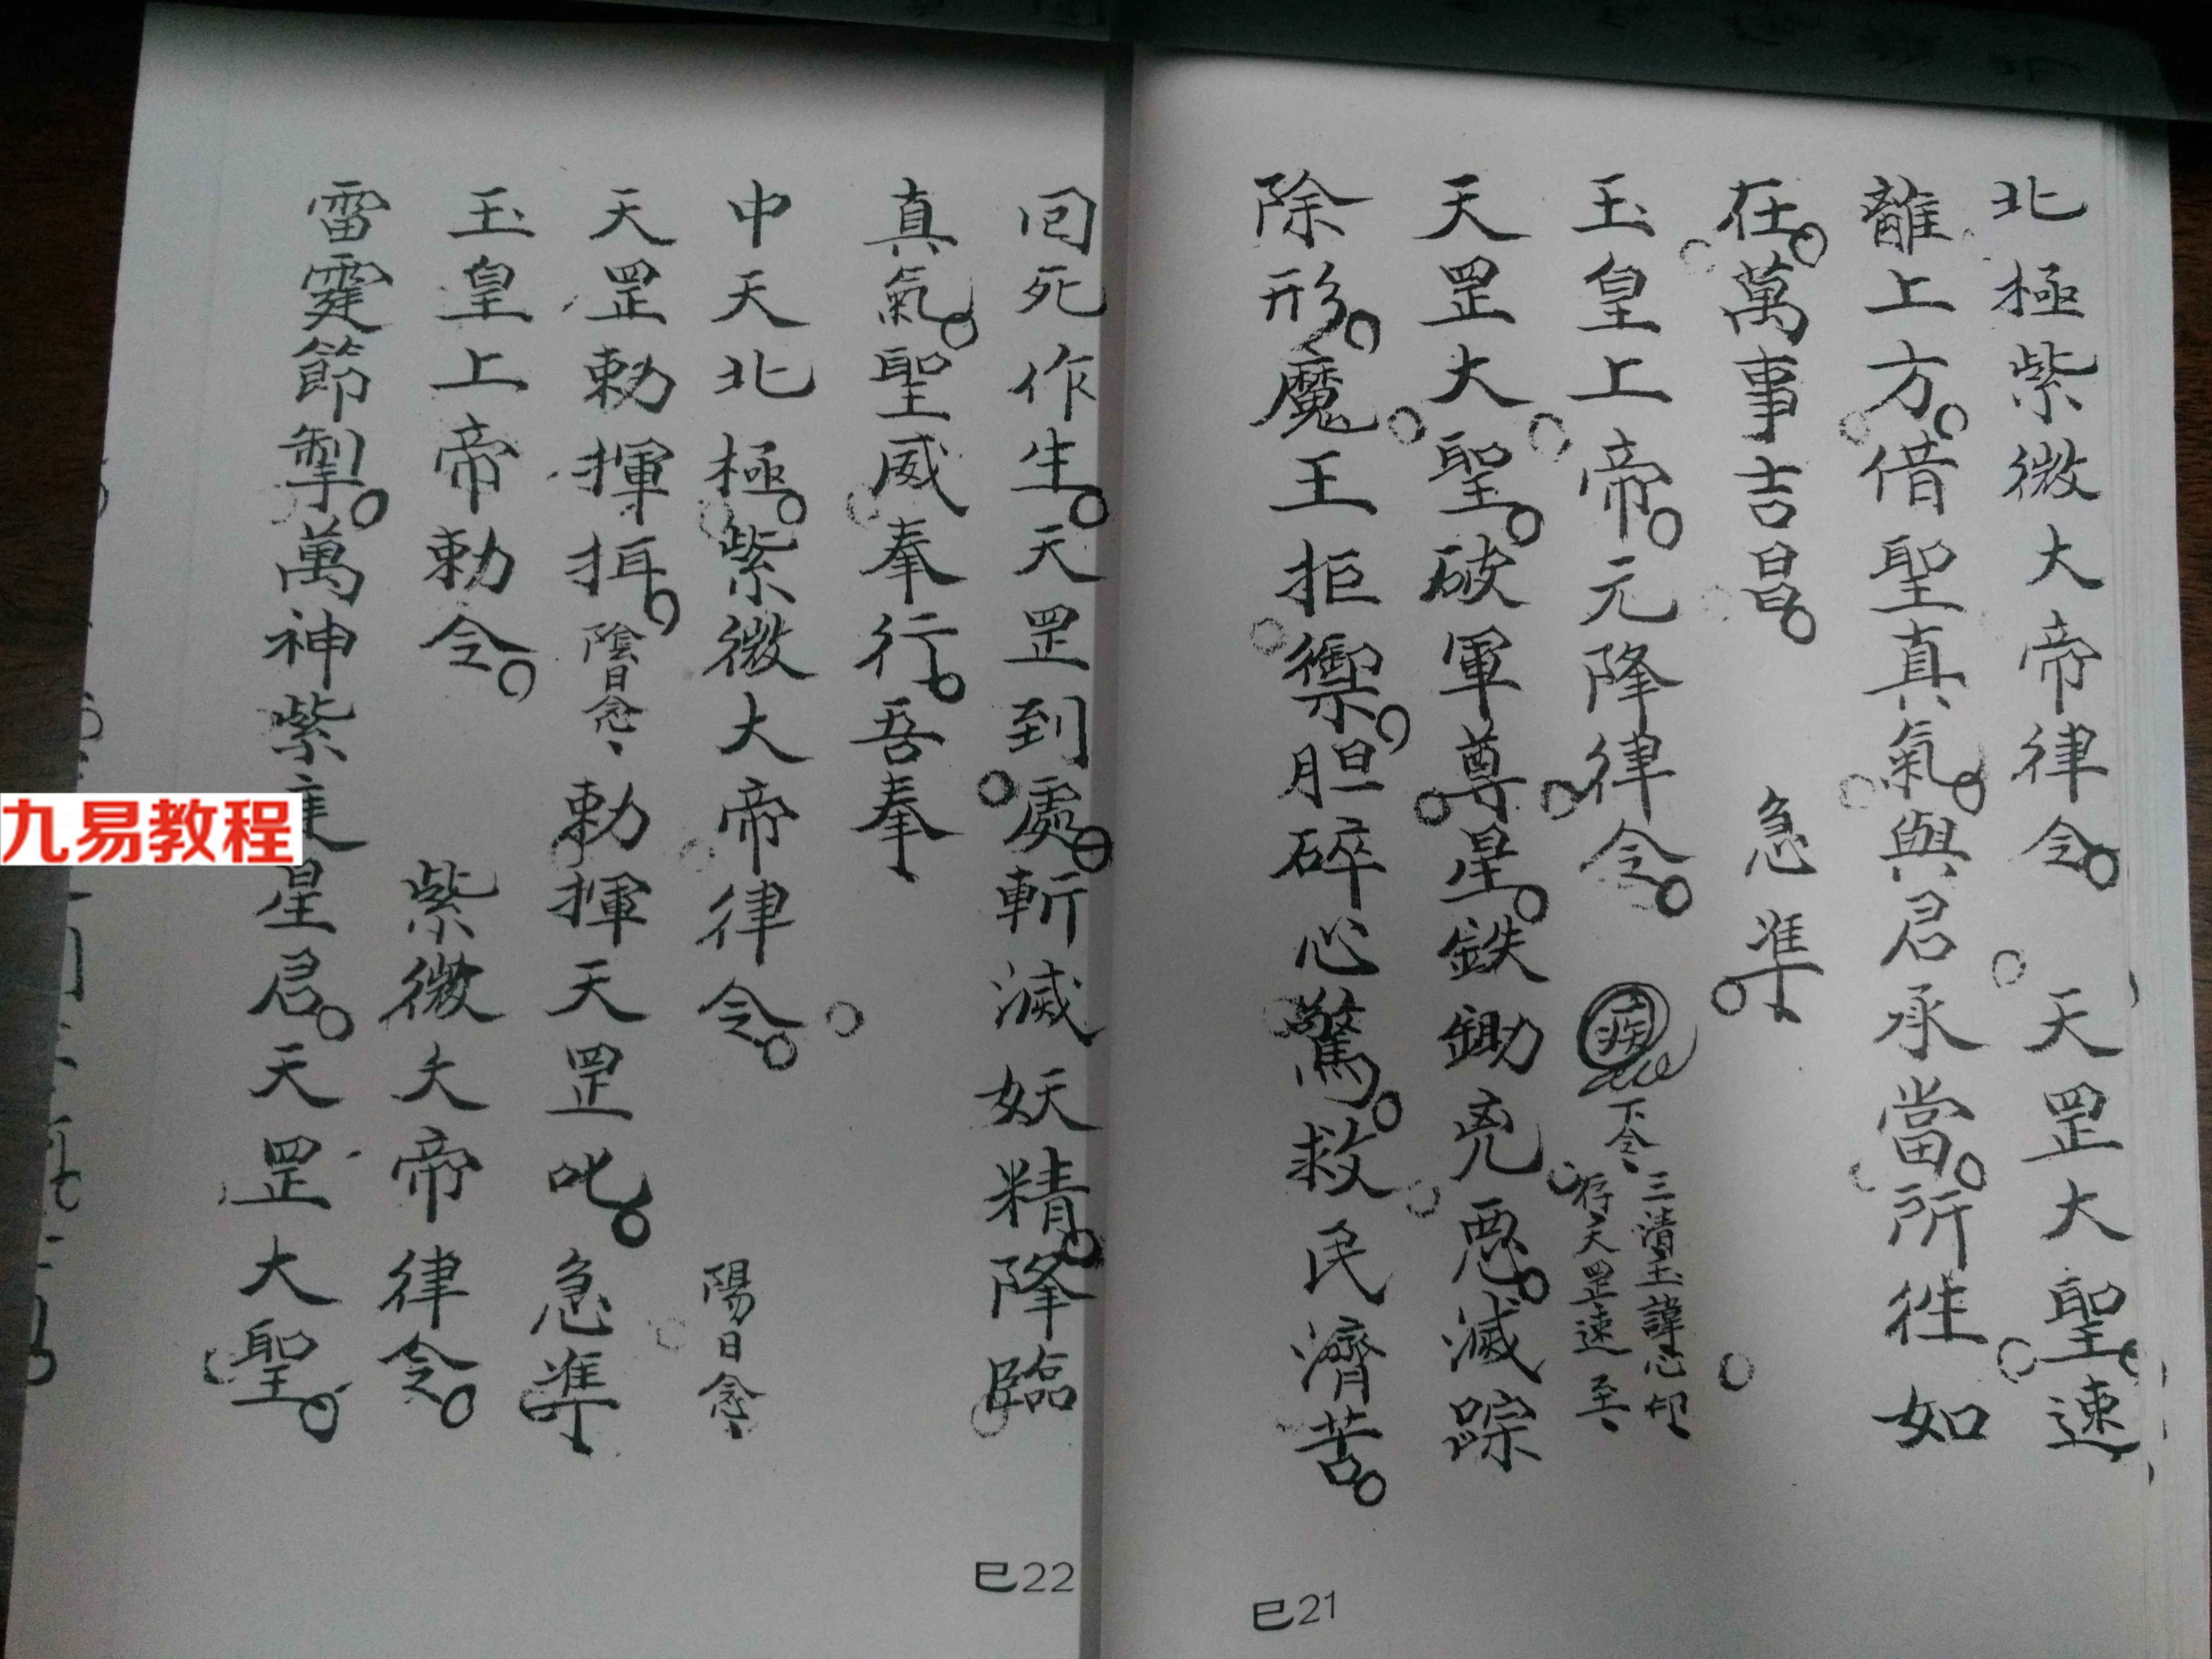 北極紫微大帝律令。天罡大聖。速
離上方。借聖真氣。與君承當。所往如
在。萬事吉昌。急準。
玉皇上帝。元降律令。下令
三清玉諱心印
存天罡速至
天罡大聖。破軍尊星。鉄鋤兇惡。滅踪
除形。魔王拒禦。胆碎心驚。救民濟苦。
巳21
回死作生。天罡到處。斬滅妖精。降臨
真氣。聖威奉行。吾奉
中天北極。紫微大帝律令。陽日念
天罡勅揮揖。陰日念勅揮天罡叱。急準
玉皇上帝勅令。紫微大帝律令。
雷霆節掣。萬神紫星君。天罡大聖。
巳22
九易教程